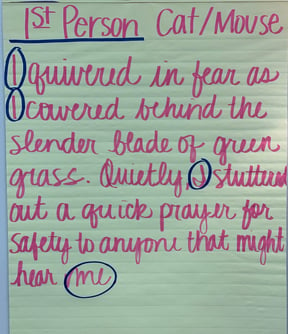 1st Person Cat/Mouse
I quivered in fear as
I cowered behind the
slender blade of green
grass. Quietly, I stuttered
out a quick prayer for
safety to anyone that might
hear me